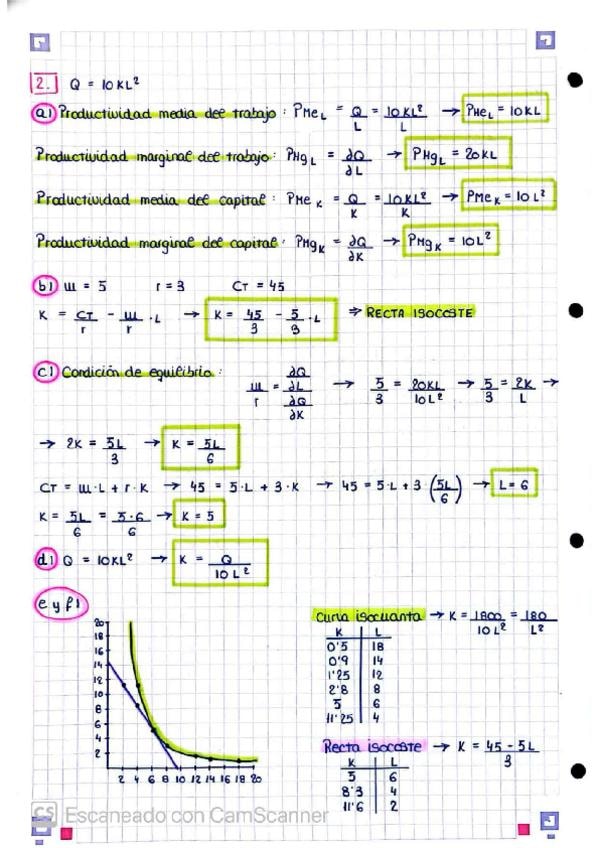 2. Q = 10KL²
a) Productividad media del trabajo: PMe_L = Q/L = 10KL²/L → PMe_L = 10KL
Productividad marginal del trabajo: PMg_L = ∂Q/∂L → PMg_L = 20KL
Productividad media del capital: PMe_K = Q/K = 10KL²/K → PMe_K = 10L²
Productividad marginal del capital: PMg_K = ∂Q/∂K → PMg_K = 10L²
b) w = 5 r = 3 CT = 45
K = CT/r - w/r · L → K = 45/3 - 5/3 · L ⇒ RECTA ISOCOSTE
c) Condición de equilibrio: w/r = (∂Q/∂L)/(∂Q/∂K) → 5/3 = 20KL/10L² → 5/3 = 2K/L →
→ 2K = 5L/3 → K = 5L/6
CT = w·L + r·K → 45 = 5·L + 3·K → 45 = 5·L + 3·(5L/6) → L = 6
K = 5L/6 = 5·6/6 → K = 5
d) Q = 10KL² → K = Q/10L²
e y f)
20
18
16
14
12
10
8
6
4
2
2 4 6 8 10 12 14 16 18 20
Curva isocuanta → K = 1800/10L² = 180/L²
K L
0'5 18
0'9 14
1'25 12
2'8 8
5 6
11'25 4
Recta isocoste → K = 45-5L/3
K L
5 6
8'3 4
11'6 2
CS Escaneado con CamScanner